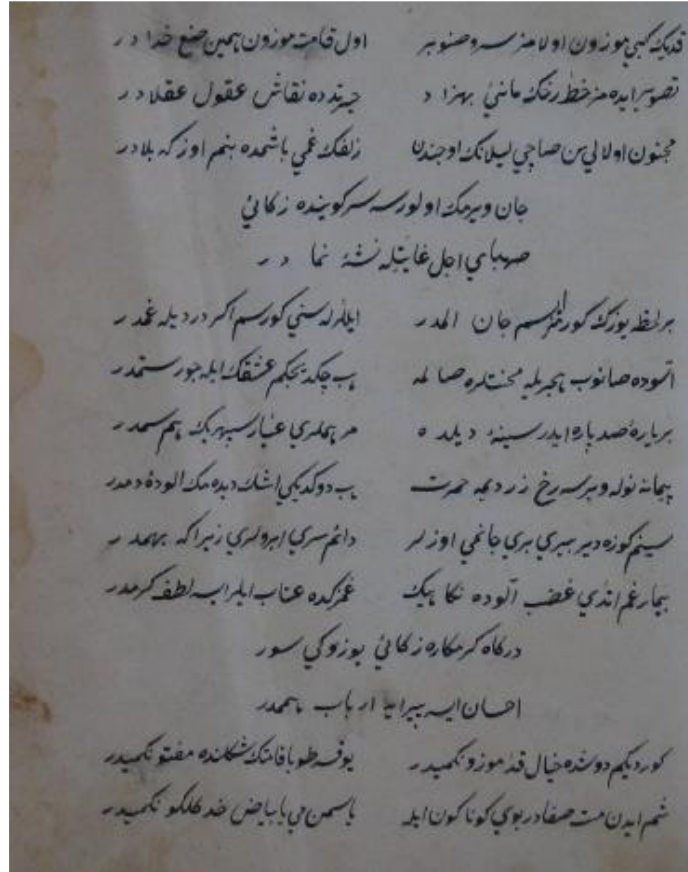 قدیك كبي موزون اولامز سرو صنوبر اول قامت موزون همین صنع خدا در
تصویر ایده مز خط رخك مانئ بهزاد حیرتده نقاش عقول عقلا در
مجنون اولالی بن صاچی لیلانك اوجندن زلفك غمی باشمده بنم اوزكه بلادر
جان ویرمك اولورسه سر كوینده زكائي
صهبای اجل غایتله نشئه نما در
بر لحظه یوزك كورمز ایسم جان المدر ایللرله سنی كورسم اكر درد یله غمدر
آسوده صانوب هجریله محنتلره صالمه هب چكدیجكم عشقك ایله جور ستمدر
بریاره صد پاره ایدر سینه دیلده
پیمانه نوله ویرسه رخ زردیمه حمرت هب دوكدیكی اشك دیده مك آلوده دمدر
سینم كوزه دیر بیری بری جانمی اوزلر دائم سری ابرولری زیرا كه بهمدر
بیمار غم اتدی غضب آلوده نكاهیك غمزكده عتاب ایلر ایسه لطف كرمدر
دركاه كرمكاره زكائی یوزوكی سور
احسان ایسه ارباب
كوردیكم دوشده خیال قد موزونكمیدر یوقسه طوبا قامتك شكلنده مفتونكمیدر
شم ایدن مست صفادر بوی كوناكون ایله یاسمن می یا بیاض خد كلكونكمیدر